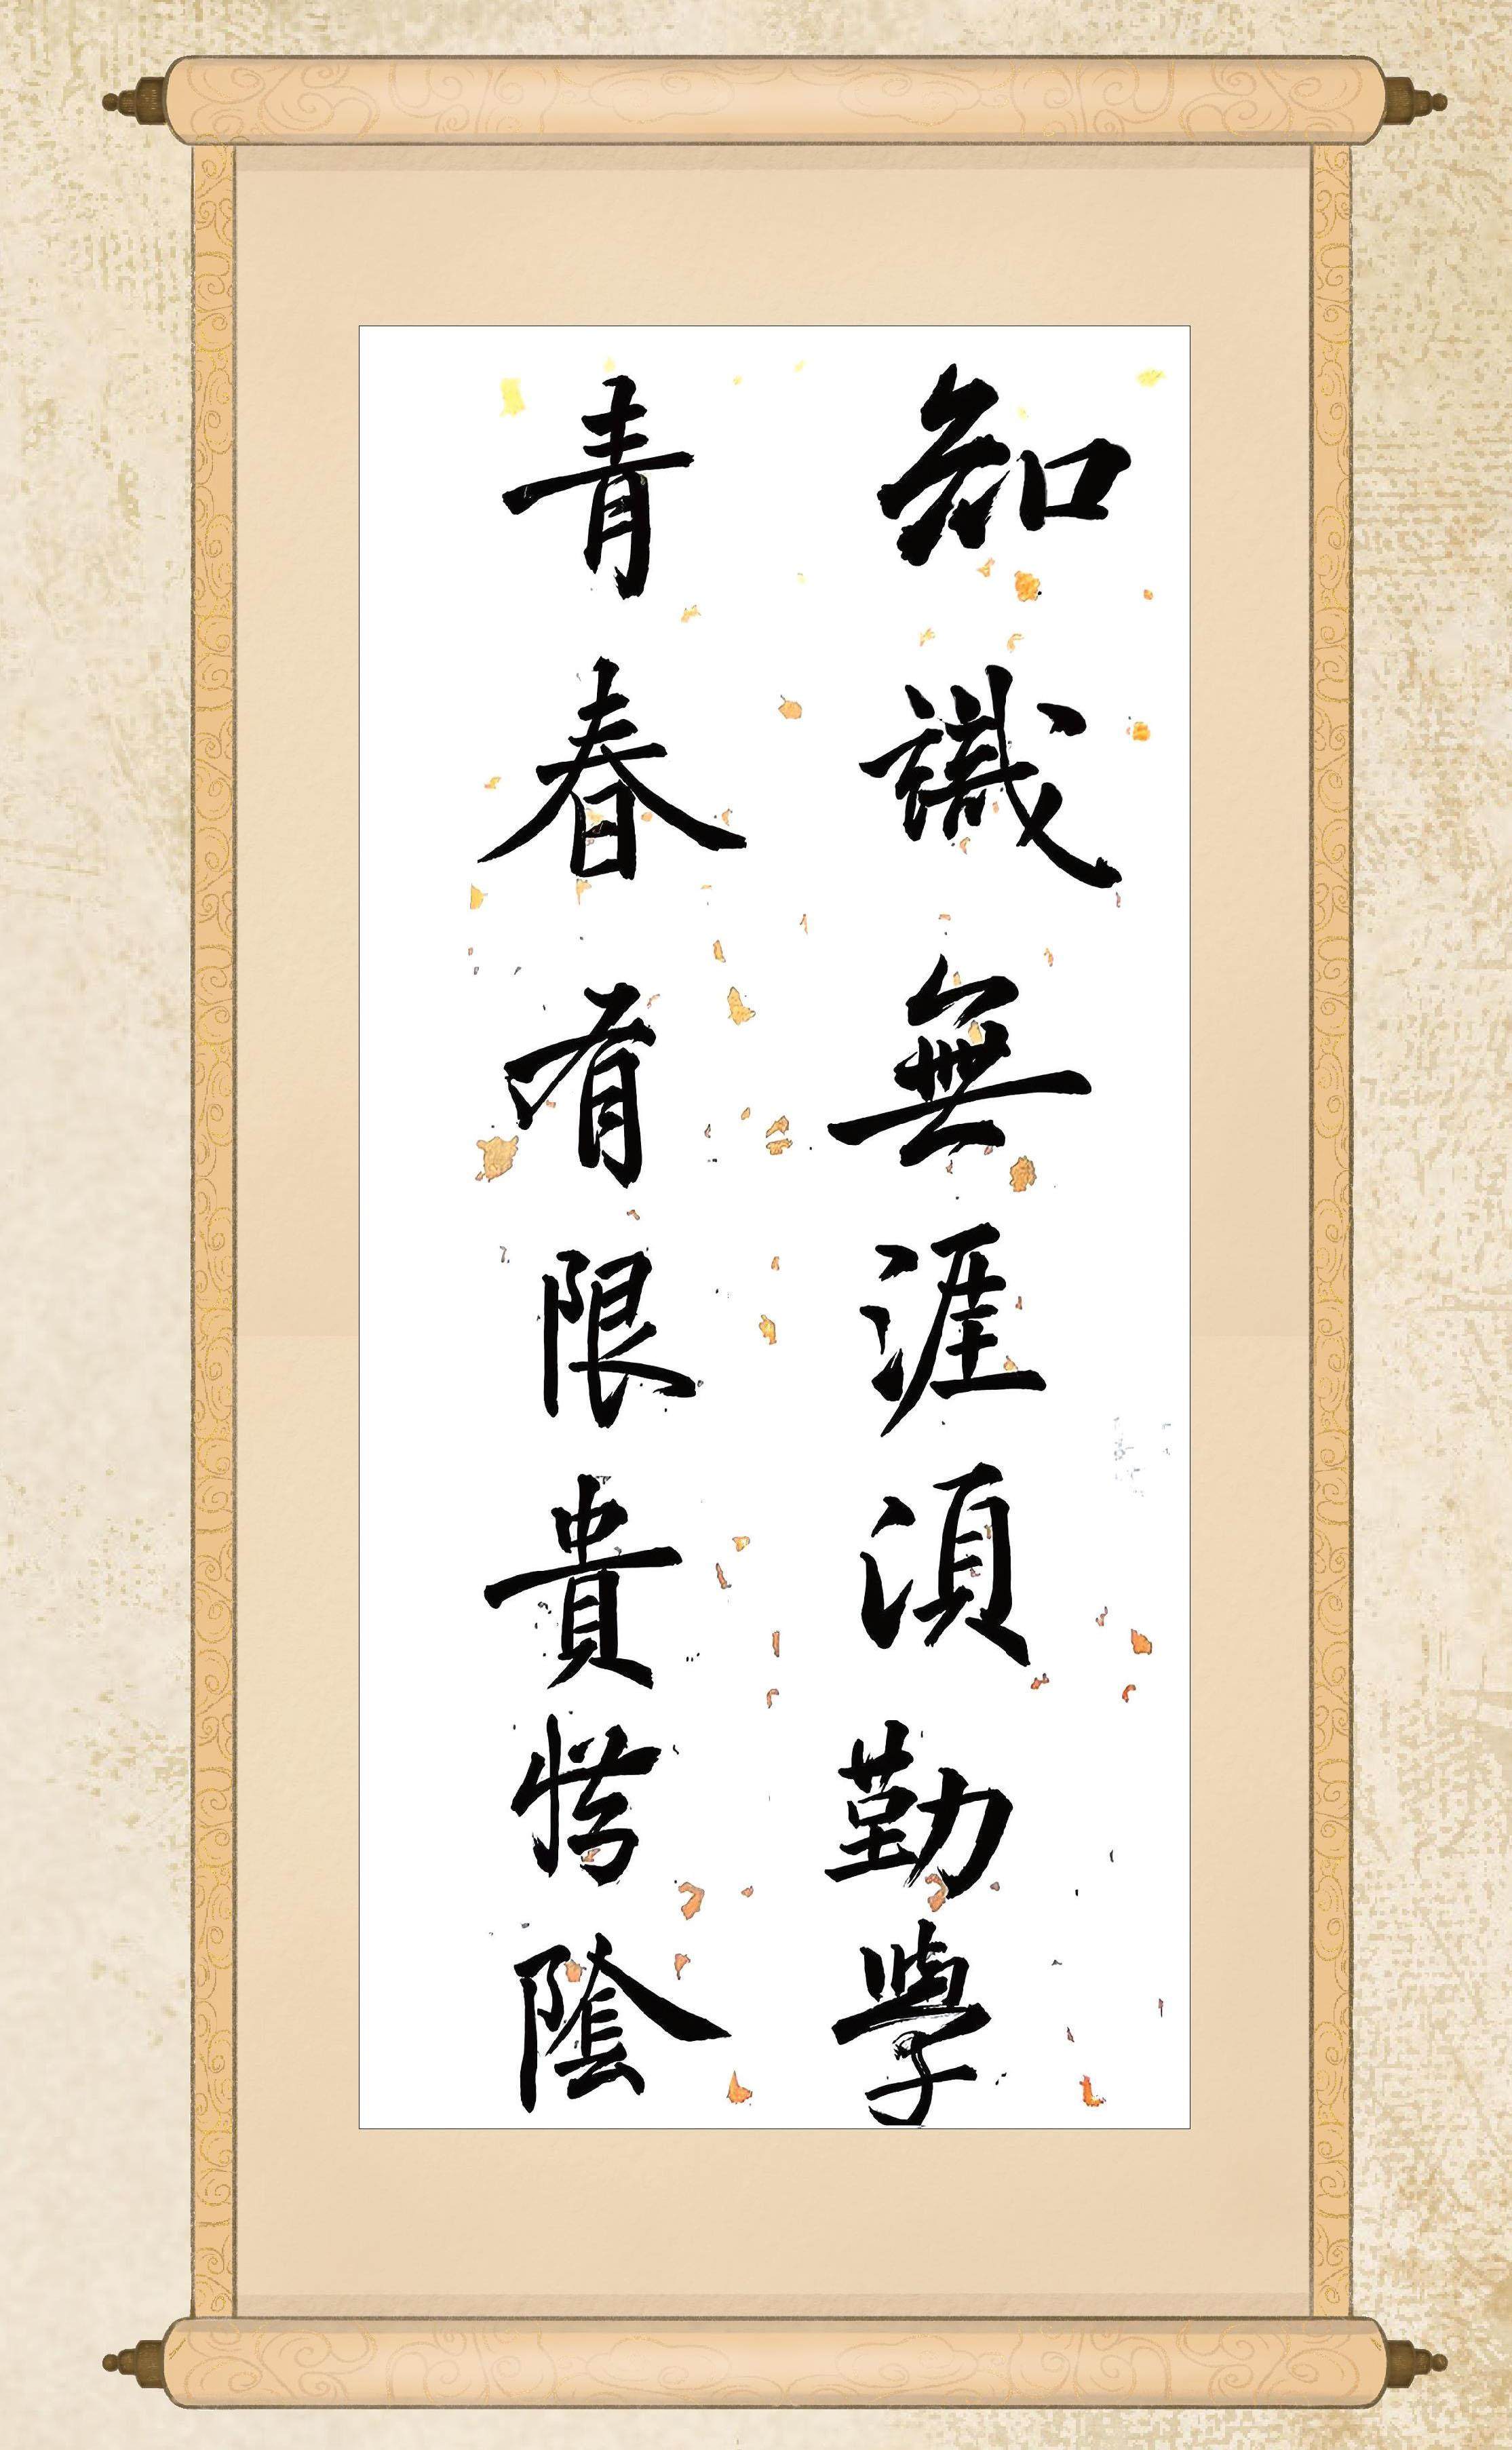 知識無涯須勤學
青春有限貴惜陰